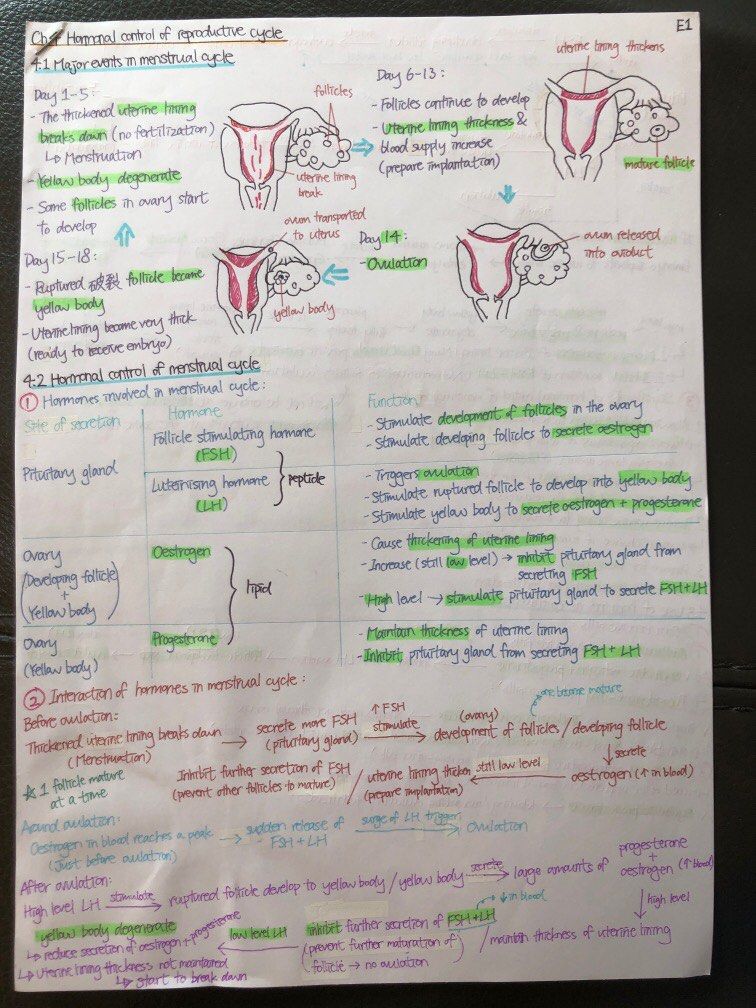 Ch 4 Hormonal control of reproductive cycle
E1
4.1 Major events in menstrual cycle
Day 1-5:
- The thickened uterine lining
breaks down (no fertilization)
↳ Menstruation
- Yellow body degenerate
- Some follicles in ovary start
to develop
follicles
uterine lining
break
Day 6-13:
- Follicles continue to develop
- Uterine lining thickness &
blood supply increase
(prepare implantation)
uterine lining thickens
mature follicle
Day 14:
- Ovulation
ovum released
into oviduct
Day 15-18:
- Ruptured 破裂 follicle became
yellow body
- Uterine lining became very thick
(ready to receive embryo)
ovum transported
to uterus
yellow body
4.2 Hormonal control of menstrual cycle
① Hormones involved in menstrual cycle:
Site of secretion
Hormone
Function
Pituitary gland
Follicle stimulating hormone
(FSH)
- Stimulate development of follicles in the ovary
- Stimulate developing follicles to secrete oestrogen
Luteinising hormone
(LH)
peptide
- Triggers ovulation
- Stimulate ruptured follicle to develop into yellow body
- Stimulate yellow body to secrete oestrogen + progesterone
Ovary
(Developing follicle
+
Yellow body)
Oestrogen
lipid
- Cause thickening of uterine lining
- Increase (still low level) → inhibit pituitary gland from
secreting FSH
- High level → stimulate pituitary gland to secrete FSH+LH
Ovary
(Yellow body)
Progesterone
- Maintain thickness of uterine lining
- Inhibit pituitary gland from secreting FSH + LH
② Interaction of hormones in menstrual cycle:
Before ovulation:
Thickened uterine lining breaks down
(Menstruation)
→ secrete more FSH
(pituitary gland)
↑ FSH
stimulate
(ovary)
development of follicles / developing follicle
one become mature
↓ secrete
oestrogen (↑ in blood)
still low level
uterine lining thicken
(prepare implantation)
/ Inhibit further secretion of FSH
(prevent other follicles to mature)
☆ 1 follicle mature
at a time
Around ovulation:
Oestrogen in blood reaches a peak
(Just before ovulation)
→ sudden release of
FSH + LH
surge of LH trigger
→ Ovulation
After ovulation:
High level LH
stimulate
→ ruptured follicle develop to yellow body / yellow body
secrete
→ large amounts of
progesterone
+
oestrogen (↑ blood)
↓ high level
/ maintain thickness of uterine lining
↓ in blood
inhibit further secretion of FSH + LH
(prevent further maturation of
follicle → no ovulation)
low level LH
yellow body degenerate
↳ reduce secretion of oestrogen + progesterone
↳ Uterine lining thickness not maintained
↳ start to break down